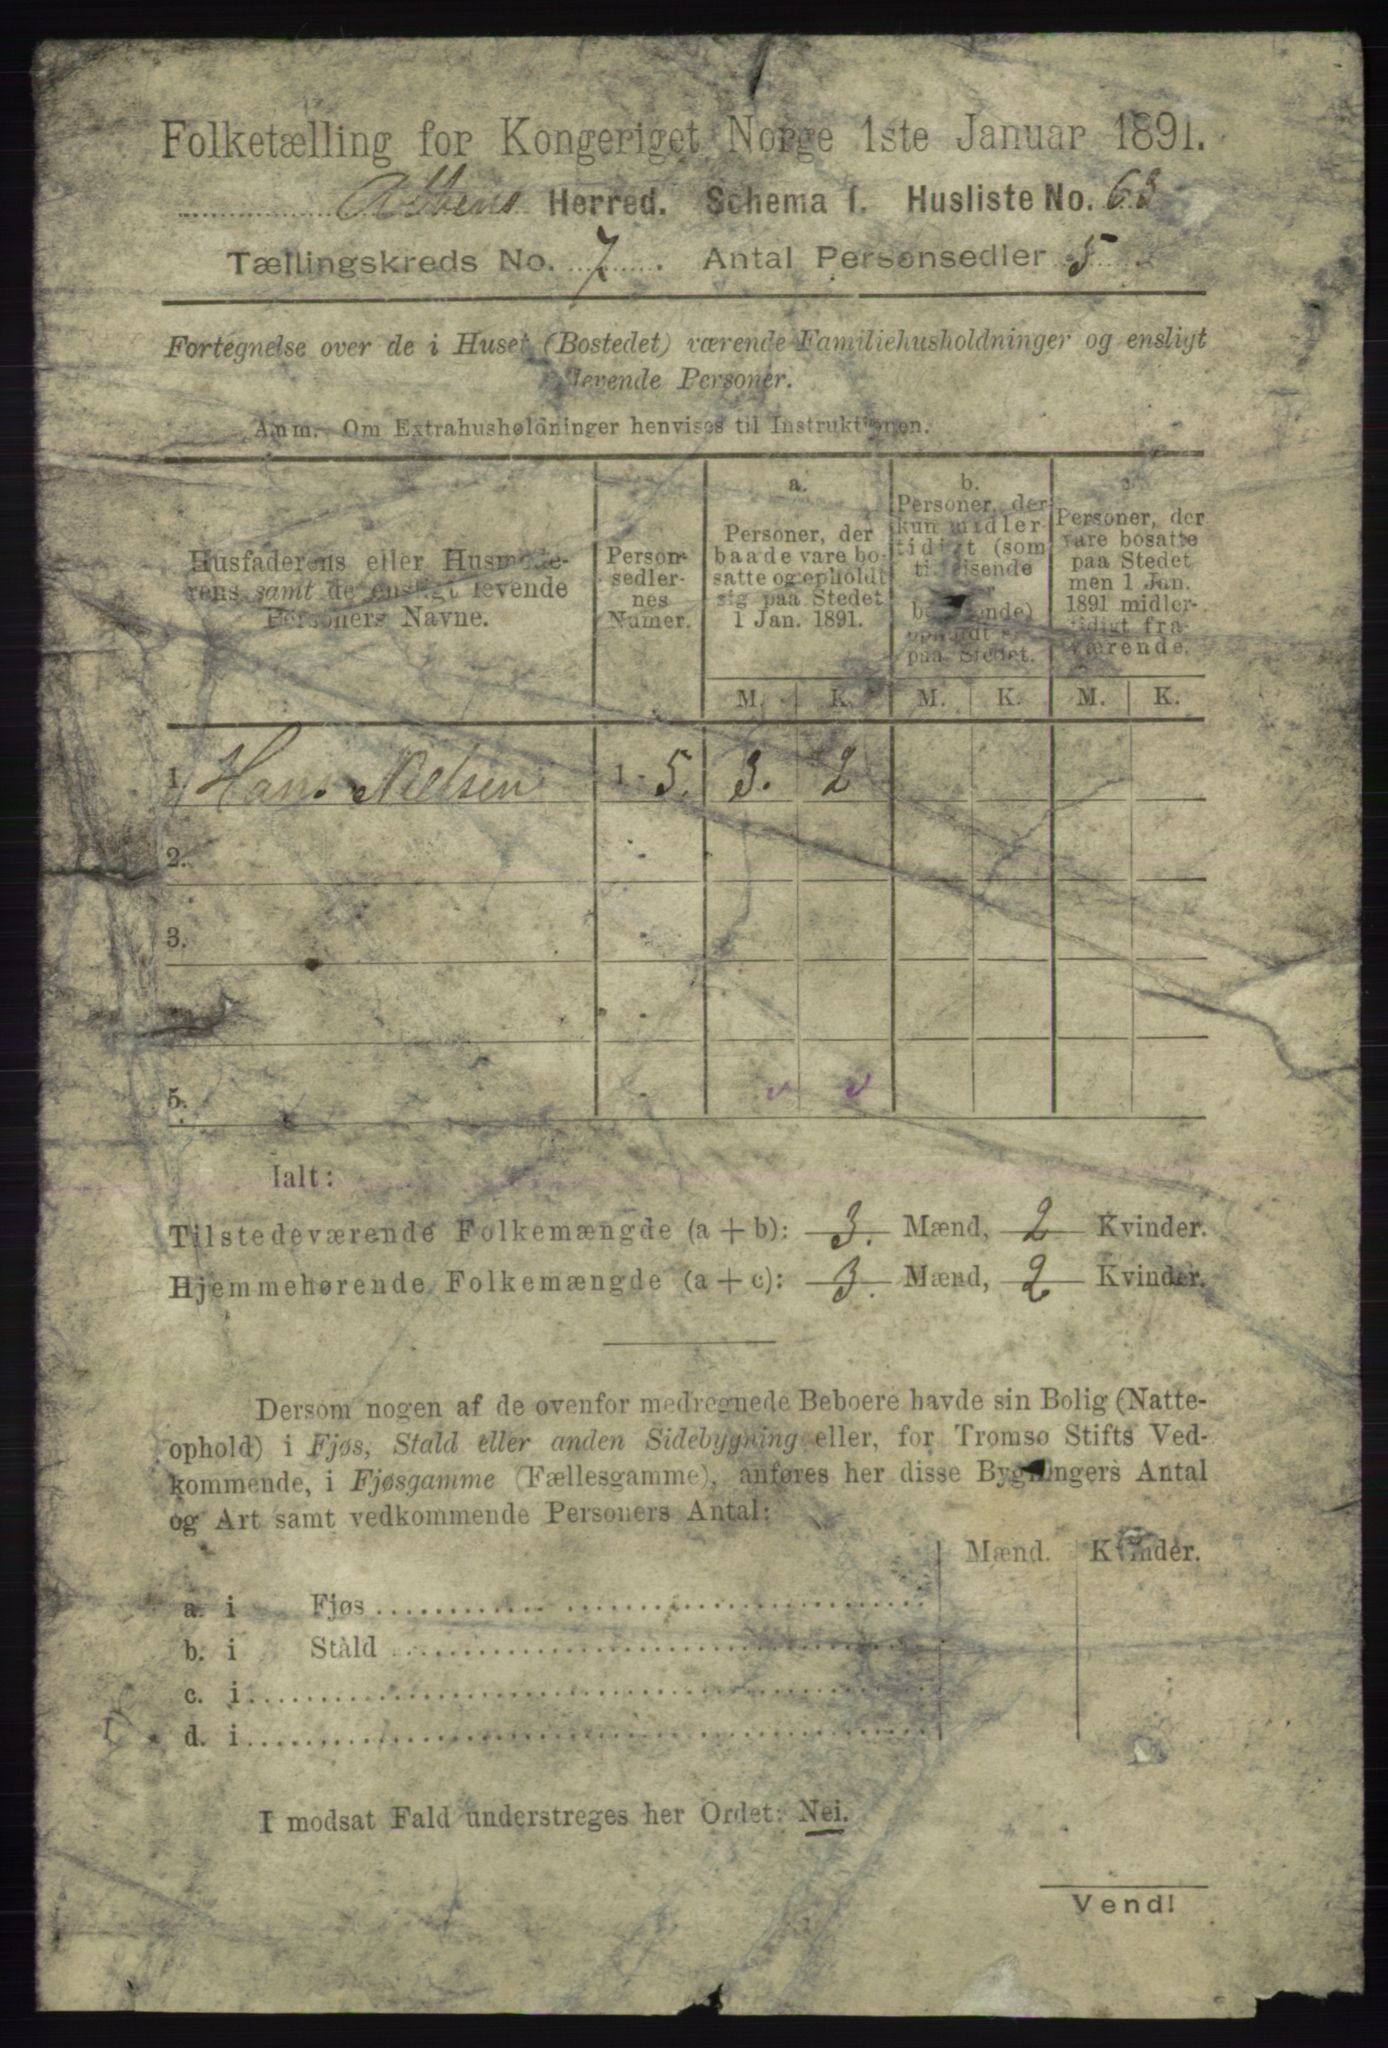 Folketælling for Kongeriget Norge 1ste Januar 1891.
Altens Herred. Schema I. Husliste No. 63
Tællingskreds No. 7. Antal Personsedler 5.
Fortegnelse over de i Huset (Bostedet) værende Familiehusholdninger og ensligt
levende Personer.
Anm. Om Extrahusholdninger henvises til Instruktionen.
Husfaderens eller Husmode-
rens samt de ensligt levende
Personers Navne.
Person-
sedler-
nes
Numer.
a.
Personer, der
baade vare bo-
satte og opholdt
sig paa Stedet
1 Jan. 1891.
b.
Personer, der
kun midler-
tidigt (som
tilreisende
besøgende)
opholdt sig
paa Stedet.
c.
Personer, der
vare bosatte
paa Stedet
men 1 Jan.
1891 midler-
tidigt fra-
værende.
M. K. M. K. M. K.
1. Hans Nielsen 1 - 5. 3. 2
2. -
3. -
-
5. -
Ialt:
Tilstedeværende Folkemængde (a + b): 3. Mænd, 2 Kvinder.
Hjemmehørende Folkemængde (a + c): 3. Mænd, 2 Kvinder.
Dersom nogen af de ovenfor medregnede Beboere havde sin Bolig (Natte-
ophold) i Fjøs, Stald eller anden Sidebygning eller, for Tromsø Stifts Ved-
kommende, i Fjøsgamme (Fællesgamme), anføres her disse Bygningers Antal
og Art samt vedkommende Personers Antal:
Mænd. Kvinder.
a. i Fjøs
b. i Stald
c. i
d. i
I modsat Fald understreges her Ordet: Nei.
Vend!